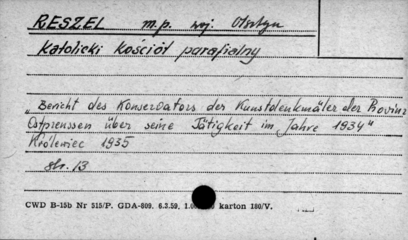 RESZEL m.p. woj. Olsztyn
Katolicki kościół parafialny
„Bericht des Konservators der Kunstdenkmäler der Provinz
Ostpreussen über seine Tätigkeit im Jahre 1934"
Królewiec 1935
str. 13
CWD B-15b Nr 515/P. GDA-809. 6.3.59. karton 180/V.